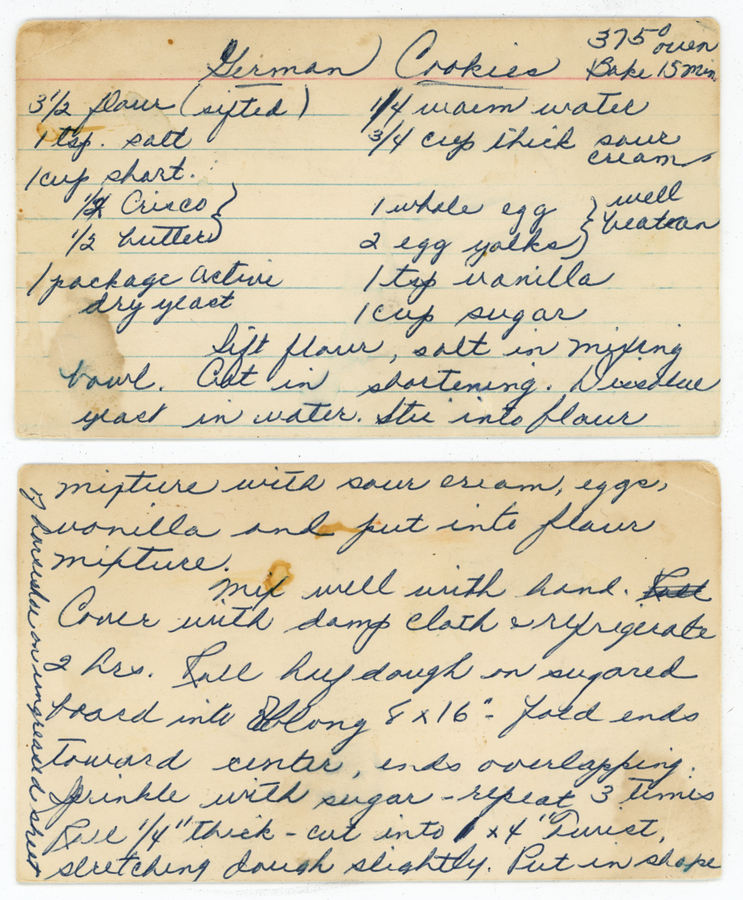 German Cookies
375° oven
Bake 15 min.
3 1/2 flour (sifted)
1 tsp. salt
1 cup short.
1/2 Crisco }
1/2 butter }
1 package active
dry yeast
1/4 warm water
3/4 cup thick sour
cream
1 whole egg } well
2 egg yolks } beaten
1 tsp vanilla
1 cup sugar
Sift flour, salt in mixing
bowl. Cut in shortening. Dissolve
yeast in water. Stir into flour
mixture with sour cream, eggs,
vanilla and put into flour
mixture.
Mix well with hand.
Cover with damp cloth & refrigerate
2 hrs. Roll dough on sugared
board into oblong 8 x 16" - fold ends
toward center, ends overlapping.
Sprinkle with sugar - repeat 3 times
Roll 1/4" thick - cut into 1 x 4" Twist,
stretching dough slightly. Put in shape
of horseshoe on ungreased sheet